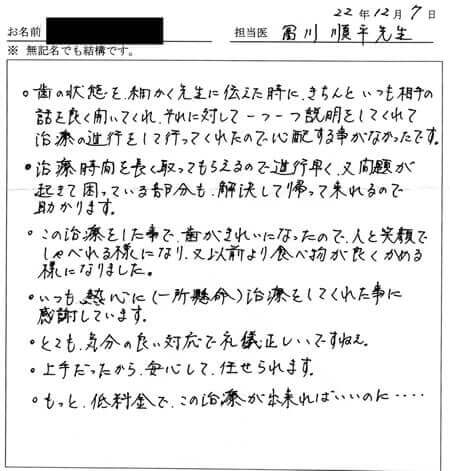 22年12月7日
お名前
担当医 冨川 順平先生
※ 無記名でも結構です。
。歯の状態を、細かく先生に伝えた時に、きちんといつも相手の
話を良く聞いてくれ、それに対して一つ一つ説明をしてくれて
治療の進行をして行ってくれたので心配する事がなかったです。
。治療時間を長く取ってもらえるので進行早く、又問題が
起きて困っている部分も、解決して帰って来れるので
助かります。
。この治療をした事で、歯がきれいになったので、人と笑顔で
しゃべれる様になり、又以前より食べ物が良くかめる
様になりました。
。いつも、熱心に(一所懸命)治療をしてくれた事に
感謝しています。
。とても、気分の良い対応で礼儀正しいですねぇ。
。上手だったから、安心して、任せられます。
。もっと、低料金で、この治療が出来ればいいのに・・・・